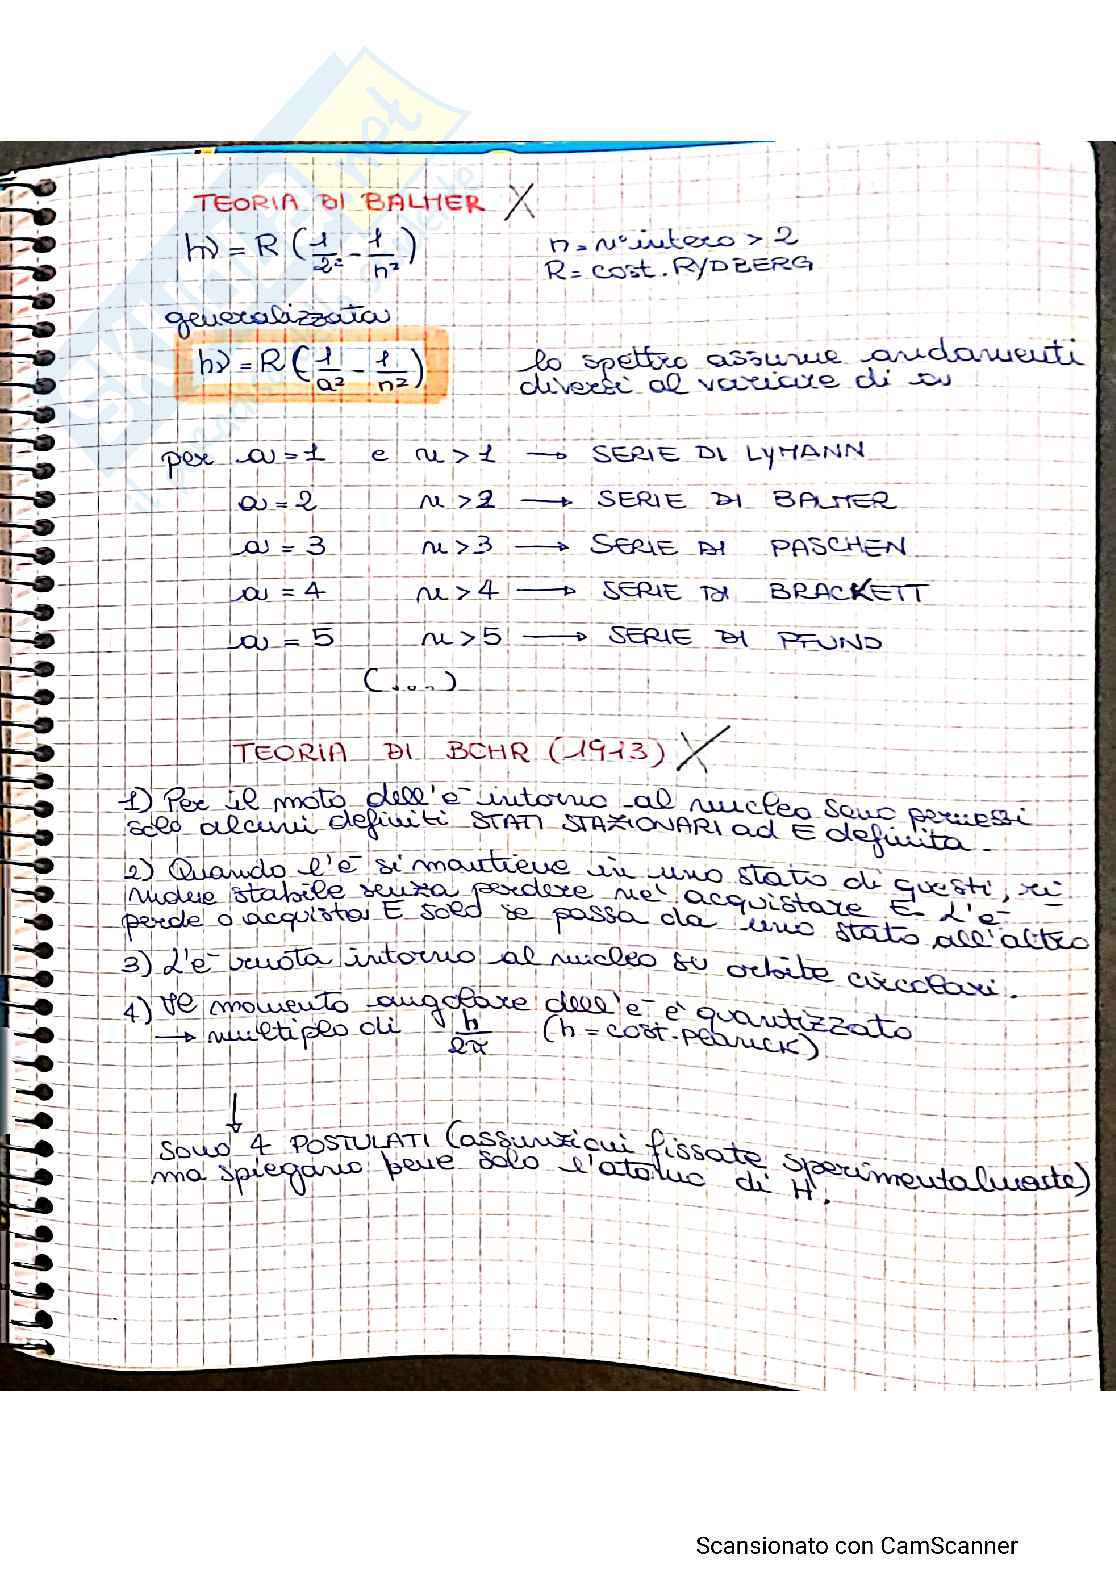 TEORIA DI BALMER X
hν = R (1/2² - 1/n²) n = n° intero > 2
R = cost. RYDBERG
generalizzata
hν = R (1/a² - 1/n²) lo spettro assume andamenti
diversi al variare di a
per a = 1 e n > 1 → SERIE DI LYMANN
a = 2 n > 2 → SERIE DI BALMER
a = 3 n > 3 → SERIE DI PASCHEN
a = 4 n > 4 → SERIE DI BRACKETT
a = 5 n > 5 → SERIE DI PFUND
(....)
TEORIA DI BOHR (1913) X
1) Per il moto dell'e⁻ intorno al nucleo sono permessi
solo alcuni definiti STATI STAZIONARI ad E definita.
2) Quando l'e⁻ si mantiene in uno stato di questi, ri
mane stabile senza perdere né acquistare E. L'e⁻
perde o acquista E solo se passa da uno stato all'altro
3) L'e⁻ ruota intorno al nucleo su orbite circolari.
4) Il momento angolare dell'e⁻ è quantizzato
→ multiplo di h/2π (h = cost. PLANCK)
↓
Sono 4 POSTULATI (assunzioni fissate sperimentalmente)
ma spiegano bene solo l'atomo di H.
Scansionato con CamScanner